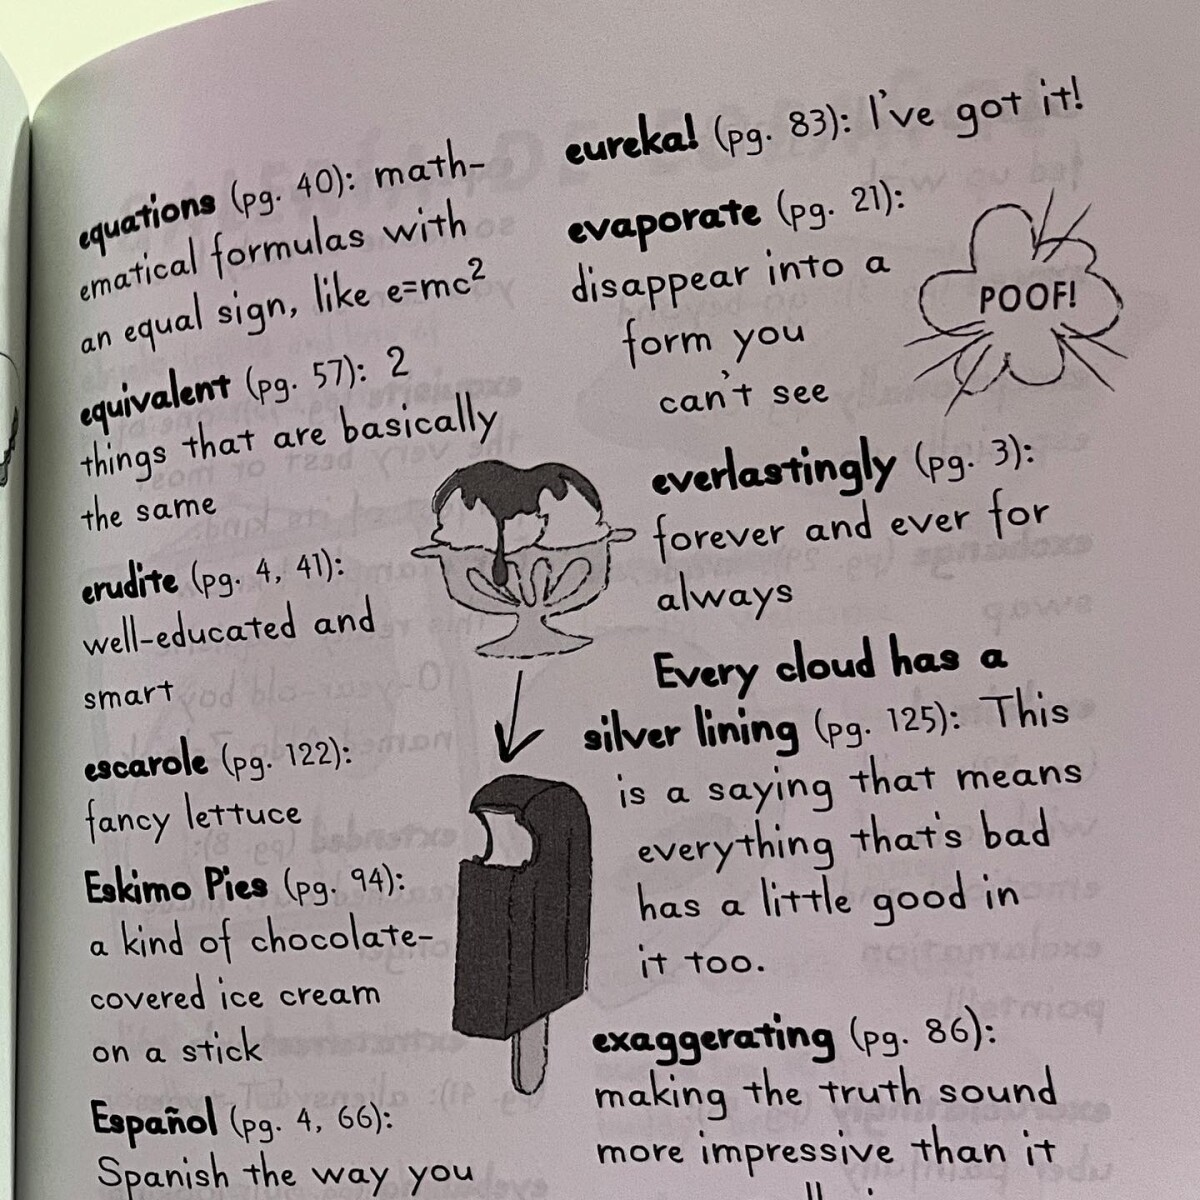 equations (pg. 40): math-
ematical formulas with
an equal sign, like e=mc²
equivalent (pg. 57): 2
things that are basically
the same
erudite (pg. 4, 41):
well-educated and
smart
escarole (pg. 122):
fancy lettuce
Eskimo Pies (pg. 94):
a kind of chocolate-
covered ice cream
on a stick
Español (pg. 4, 66):
Spanish the way you
eureka! (pg. 83): I've got it!
evaporate (pg. 21):
disappear into a
form you
can't see
POOF!
everlastingly (pg. 3):
forever and ever for
always
Every cloud has a
silver lining (pg. 125): This
is a saying that means
everything that's bad
has a little good in
it too.
exaggerating (pg. 86):
making the truth sound
more impressive than it